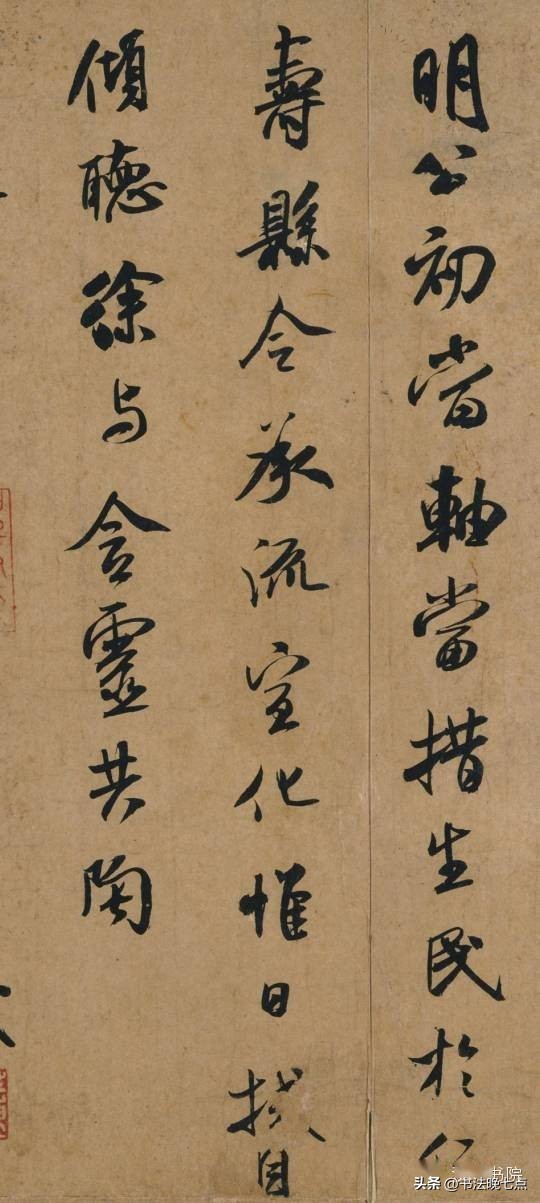 明公初當軸當措生民於仁
壽縣令承流宣化惟日拭目
傾聽徐与含靈共陶
书院
头条@书法晚七点